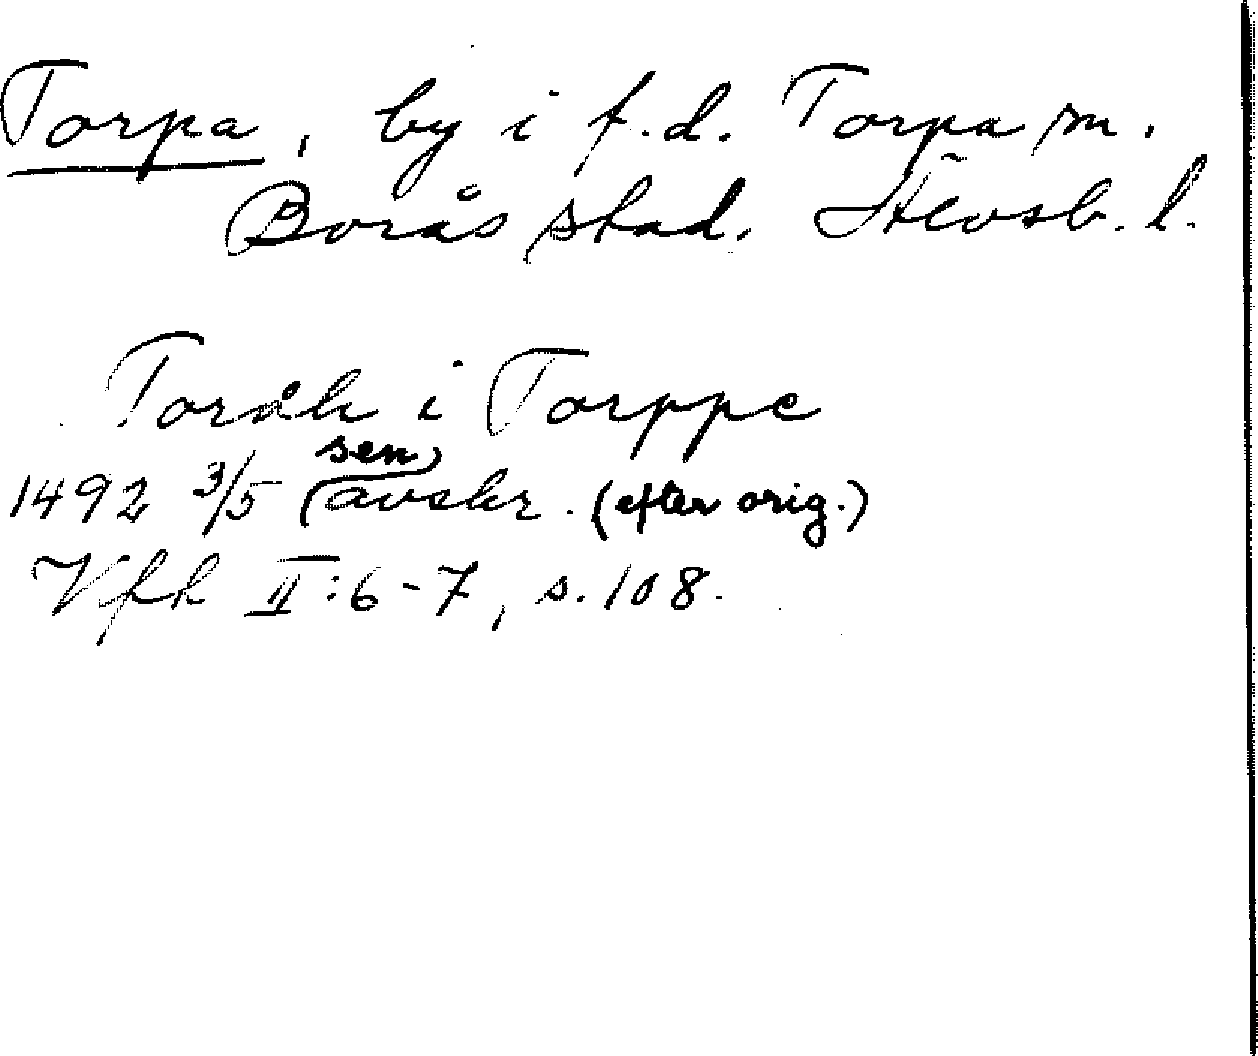 Torpa, by i f.d. Torpa sn.
Borås stad. Älvsb. l.
i Torppe
1492 3/5 (sen) avskr. (efter orig.)
Vfk II:6-7, s. 108.